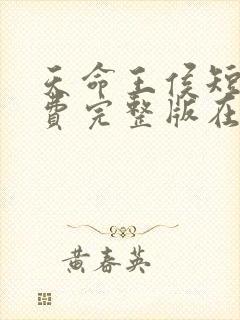 天命王侯短
费完整版在
黄春英